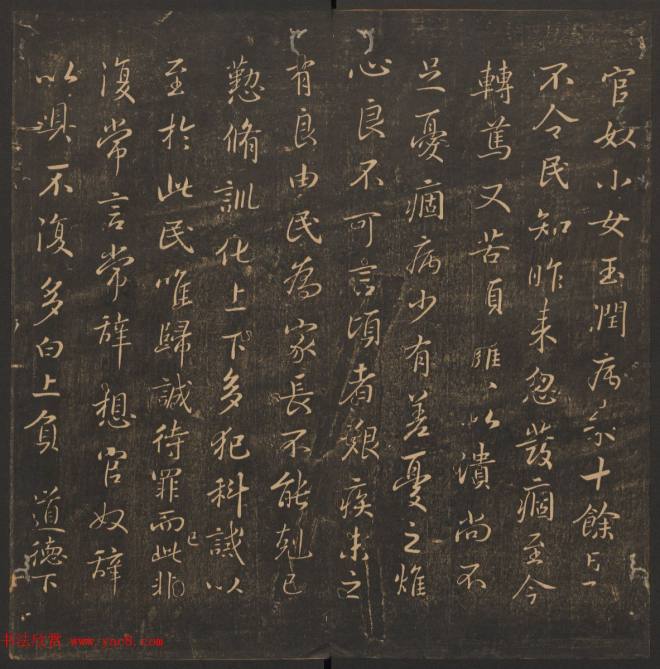 官奴小女玉潤病來十餘日
不令民知昨來忽發痼至今
轉篤又苦頭癰以潰尚不
足憂痼病少有差憂之燋
心良不可言頃者艱疾未之
有良由民為家長不能剋己
懃脩訓化上下多犯科誡以
至於此民唯歸誠待罪而此非
復常言常辭想官奴辭
以具不復多白上負道德下
书法欣赏 www.yac8.com